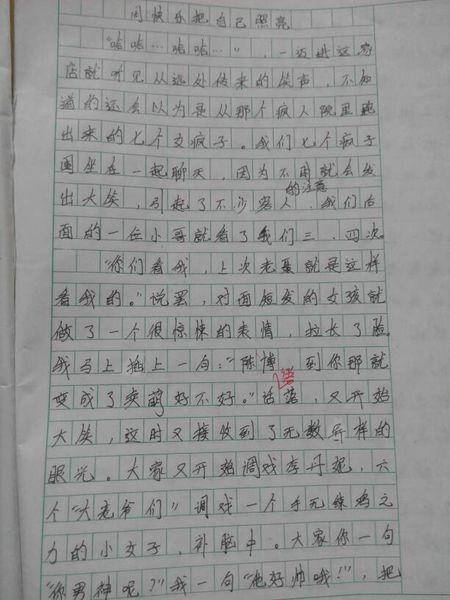 用快乐把自己照亮
“哈哈…哈哈…”,一迈进这家
店就听见从远处传来的笑声,不知
道的还会以为是从那个疯人院里跑
出来的七个女疯子。我们七个疯子
围坐在一起聊天,因为不时就会发
的注意
出大笑,引起了不少客人,我们后
面的一位小哥就看了我们三、四次。
“你们看我,上次老聂就是这样
看我的。”说罢,对面短发的女孩就
做了一个很惊悚的表情,拉长了脸。
我马上补上一句:“陈博,到你那就
变成了卖萌好不好。”话落,又开始
语
大笑,这时又接收到了无数异样的
眼光。大家又开始调戏李丹妮,六
个“大老爷们”调戏一个手无缚鸡之
力的小女子,补脑中。大家你一句
“你男神呢?”我一句“他好帅哦!”,把